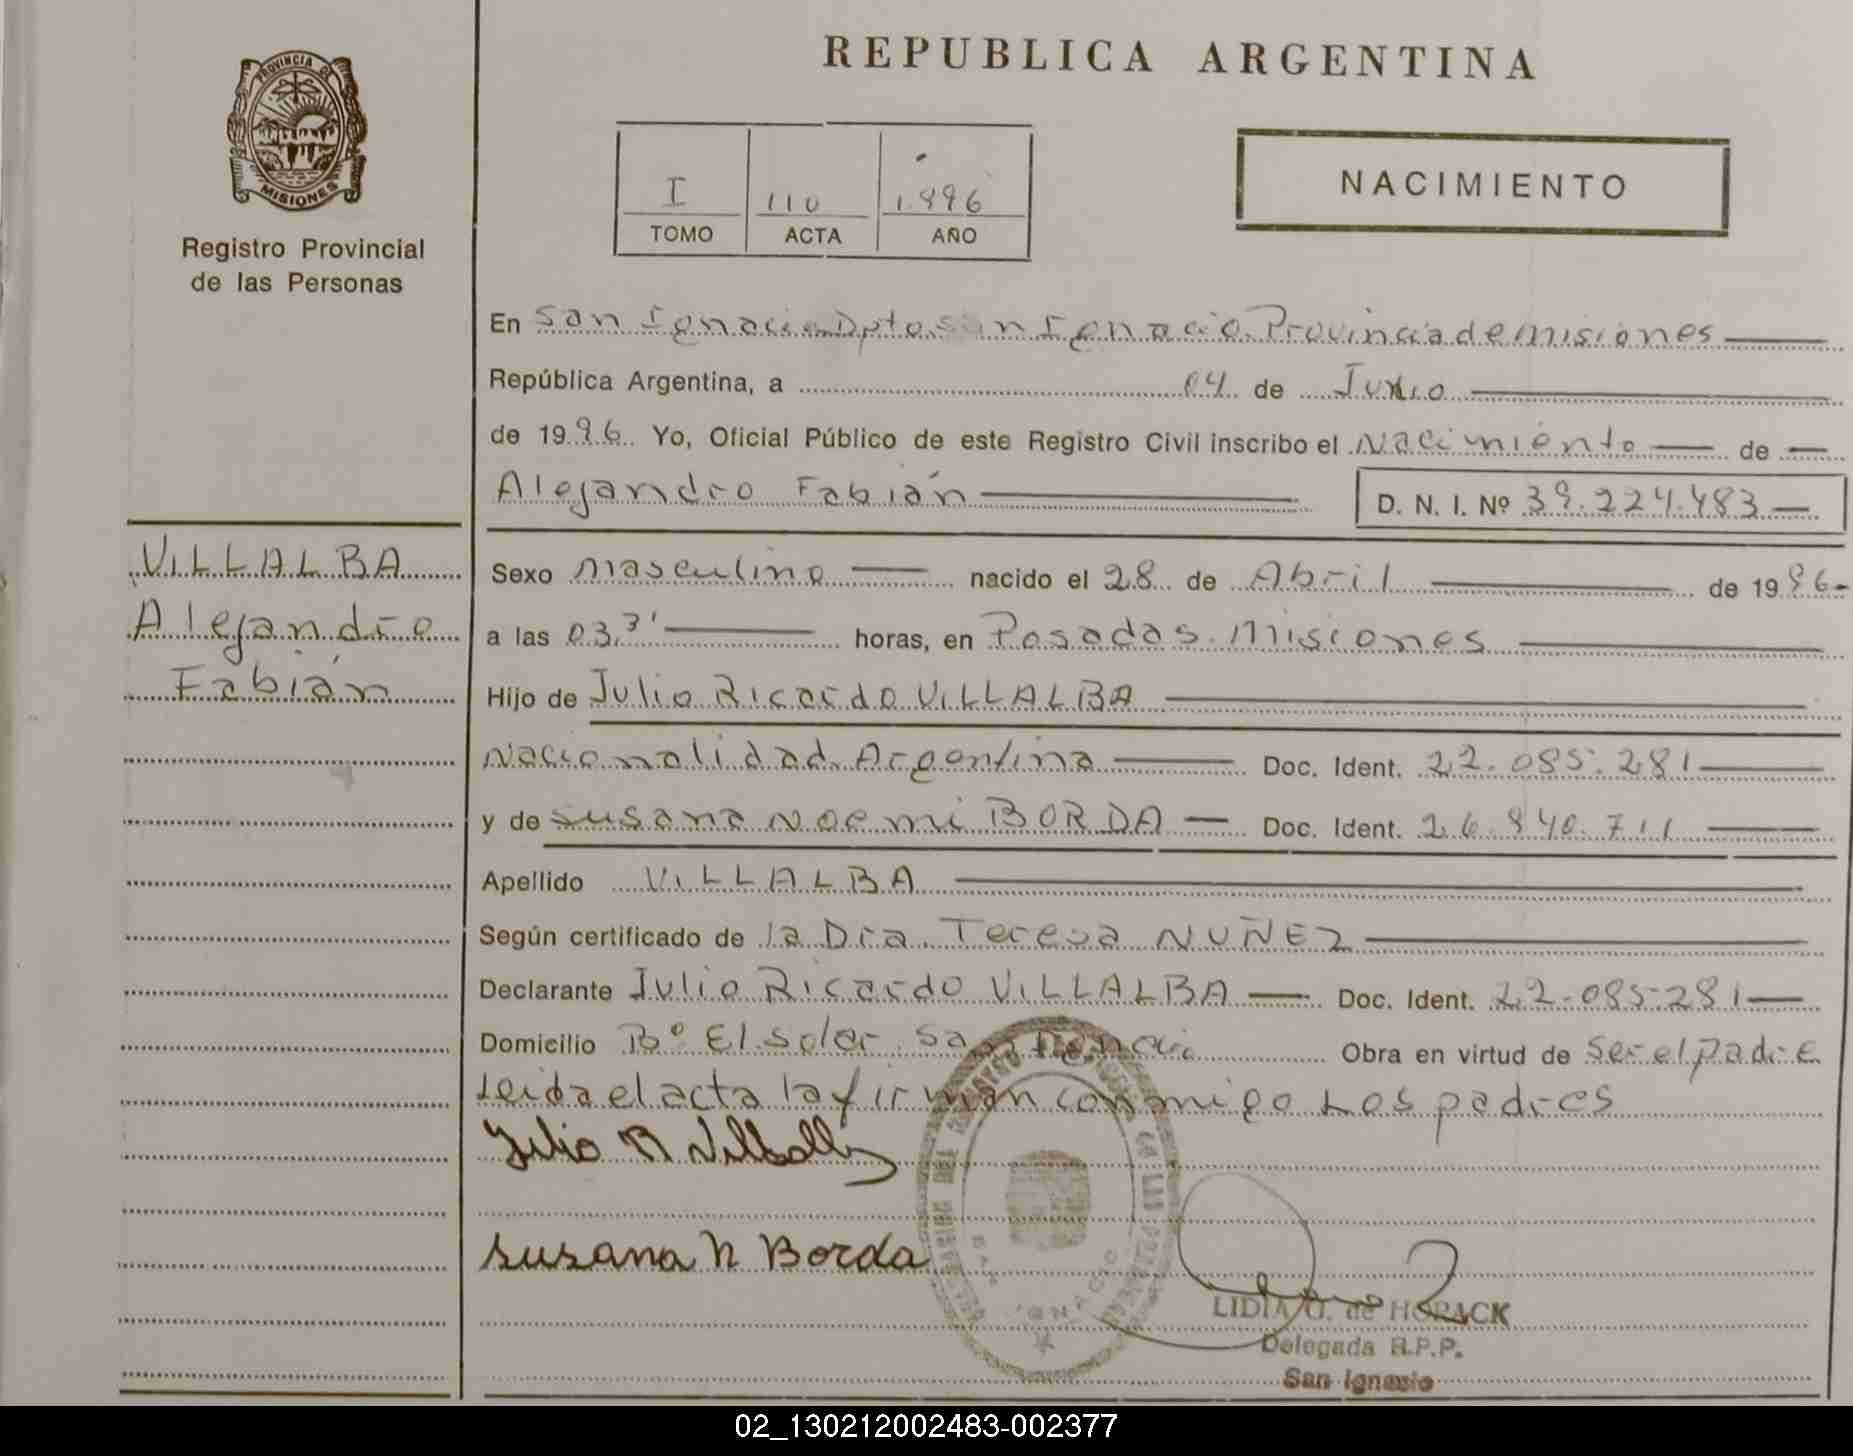 REPUBLICA ARGENTINA
PROVINCIA DE MISIONES
Registro Provincial
de las Personas
I 110 1.996
TOMO ACTA AÑO
NACIMIENTO
En San Ignacio Dpto. San Ignacio. Provincia de misiones
República Argentina, a 04 de Junio
de 1996 Yo, Oficial Público de este Registro Civil inscribo el Nacimiento de
Alejandro Fabián D. N. I. Nº 39.224.483
VILLALBA
Alejandro
Fabián
Sexo masculino nacido el 28 de Abril de 1996
a las 03,3' horas, en Posadas. Misiones
Hijo de Julio Ricardo VILLALBA
Nacionalidad Argentina Doc. Ident. 22.085.281
y de Susana Noemi BORDA Doc. Ident. 26.840.711
Apellido VILLALBA
Según certificado de la Dra. Teresa NUÑEZ
Declarante Julio Ricardo VILLALBA Doc. Ident. 22.085.281
Domicilio Bº El solar. San Ignacio Obra en virtud de Ser el padre
Leida el acta la firman conmigo Los padres
Julio R Villalba
Susana N Borda
SAN IGNACIO
LIDIA O. de HORACK
Delegada R.P.P.
San Ignacio
02_130212002483-002377